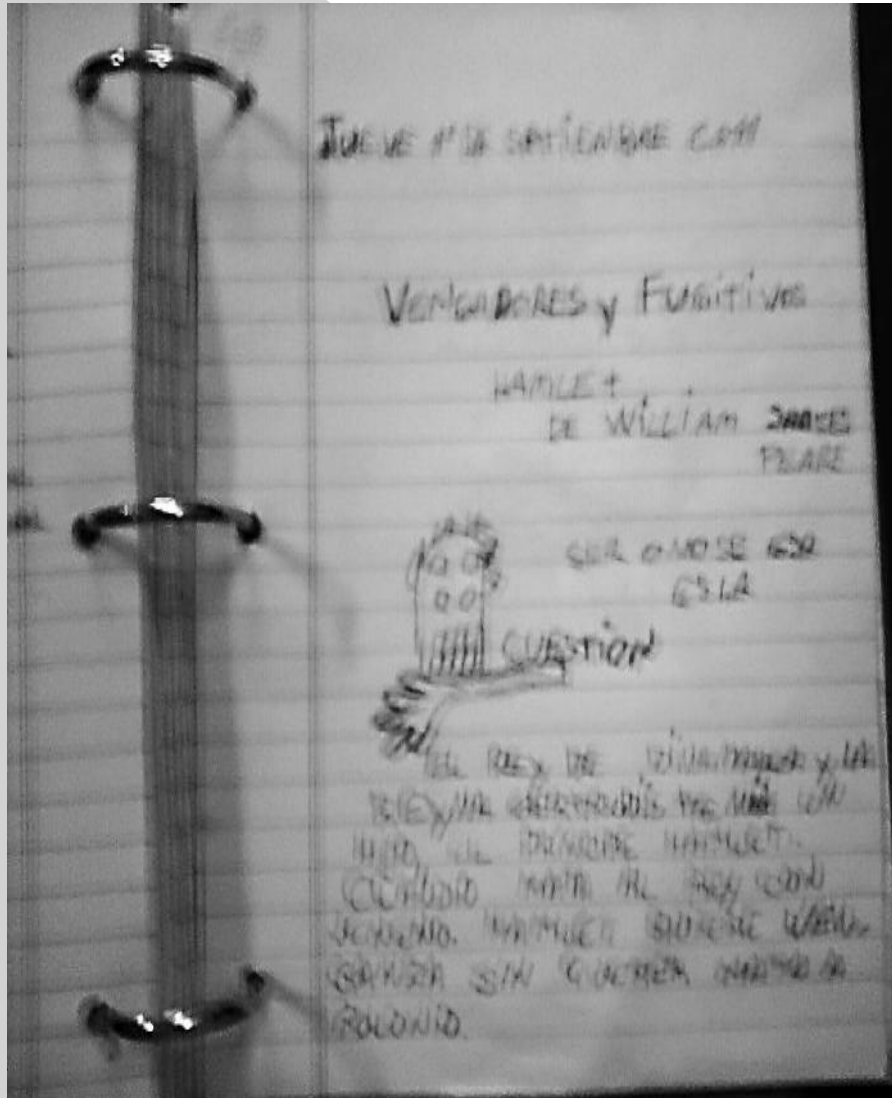 JUEVE 1º DE SEPTIENBRE
VENGADORES y FUGITIVOS
HAMLET
DE WILLIAM SHAKES
PEARE
SER O NO SE
ES LA
CUESTION
EL REY DE DINAMARCA Y LA
REINA GERTRUDIS UN
HIJO, EL PRINCIPE HAMLET.
CLAUDIO MATA AL REY CON
VENENO. HAMLET QUIERE VEN
GANZA SIN QUERER MATO A
POLONIO.